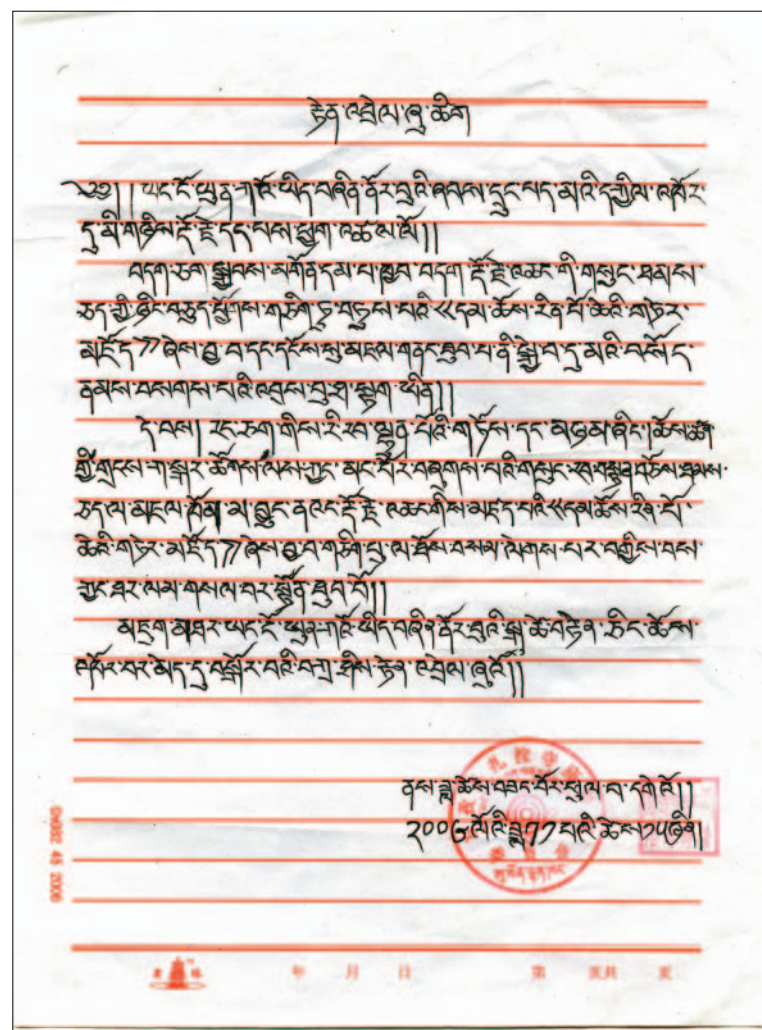 རྟེན་འབྲེལ་ཞུ་ཚིག
༄༅།། ཡང་ངོ་ཡུན་ཀཝོ་ཡིད་བཞིན་ནོར་བུའི་ཞབས་དྲུང་པད་མའི་དཀྱིལ་འཁོར་
དུ་མི་གཉིས་རྡོ་རྗེ་དད་པས་ཕྱག་འཚལ་ལོ།།
བདག་ཅག་སྐྱབས་མགོན་དམ་པ་ཁྱབ་བདག་རྡོ་རྗེ་འཆང་གི་གསུང་ཐམས་
ཅད་ཀྱི་ཉིང་བཅུད་ཕྱོགས་གཅིག་ཏུ་བཏུས་པའི《དམ་ཆོས་རིན་པོ་ཆེའི་གཏེར་
མཛོད》ཞེས་བྱ་བ་དང་དངོས་སུ་མཇལ་གནང་ཐུབ་པ་ནི་སྐྱེ་བ་དུ་མའི་བསོད་
ནམས་བསགས་པའི་འབྲས་བུ་ཁྲ་སྟག་ཡིན།།
དེ་བས། རང་ཅག་གིས་རི་རབ་ལྷུན་པོའི་གཏོས་དང་མཉམ་ཞིང་།ཆོས་ཚན་
གྱི་གྲངས་ཀ་སྐར་ཚོགས་ལས་ཀྱང་མང་པོར་བཞུགས་པའི་གསུང་རབ་དགོངས་བཅོས་ཐམས་
ཅད་ལ་མཇལ་ཁོམ་མ་བྱུང་ནའང་རྡོ་རྗེ་འཆང་གིས་མཛད་པའི《དམ་ཆོས་རིན་པོ་
ཆེའི་གཏེར་མཛོད》ཞེས་བྱ་བ་གཅིག་པུ་ལ་ཐོས་བསམ་ལེགས་པར་བགྱིས་བས་
ཀྱང་ཐར་ལམ་གསལ་བར་སྟོན་ཐུབ་བོ།།
མཇུག་མཐར་ཡང་ངོ་ཡུན་ཀཝོ་ཡིད་བཞིན་ནོར་བུའི་སྐུ་ཚེ་བརྟན་ཅིང་ཆོས་
འཁོར་བར་མེད་དུ་བསྐོར་བའི་བཀྲ་ཤིས་རྟེན་འབྲེལ་ཞུའོ།།
ནས་ཟླ་ཚེས་བཟང་པོར་ཕུལ་བ་དགེའོ།།
༢༠༠༦ལོའི་ཟླ༡༡པའི་ཚེས༡༥ཉིན།
0x002 45 2006
年 月 日 第 页共 页